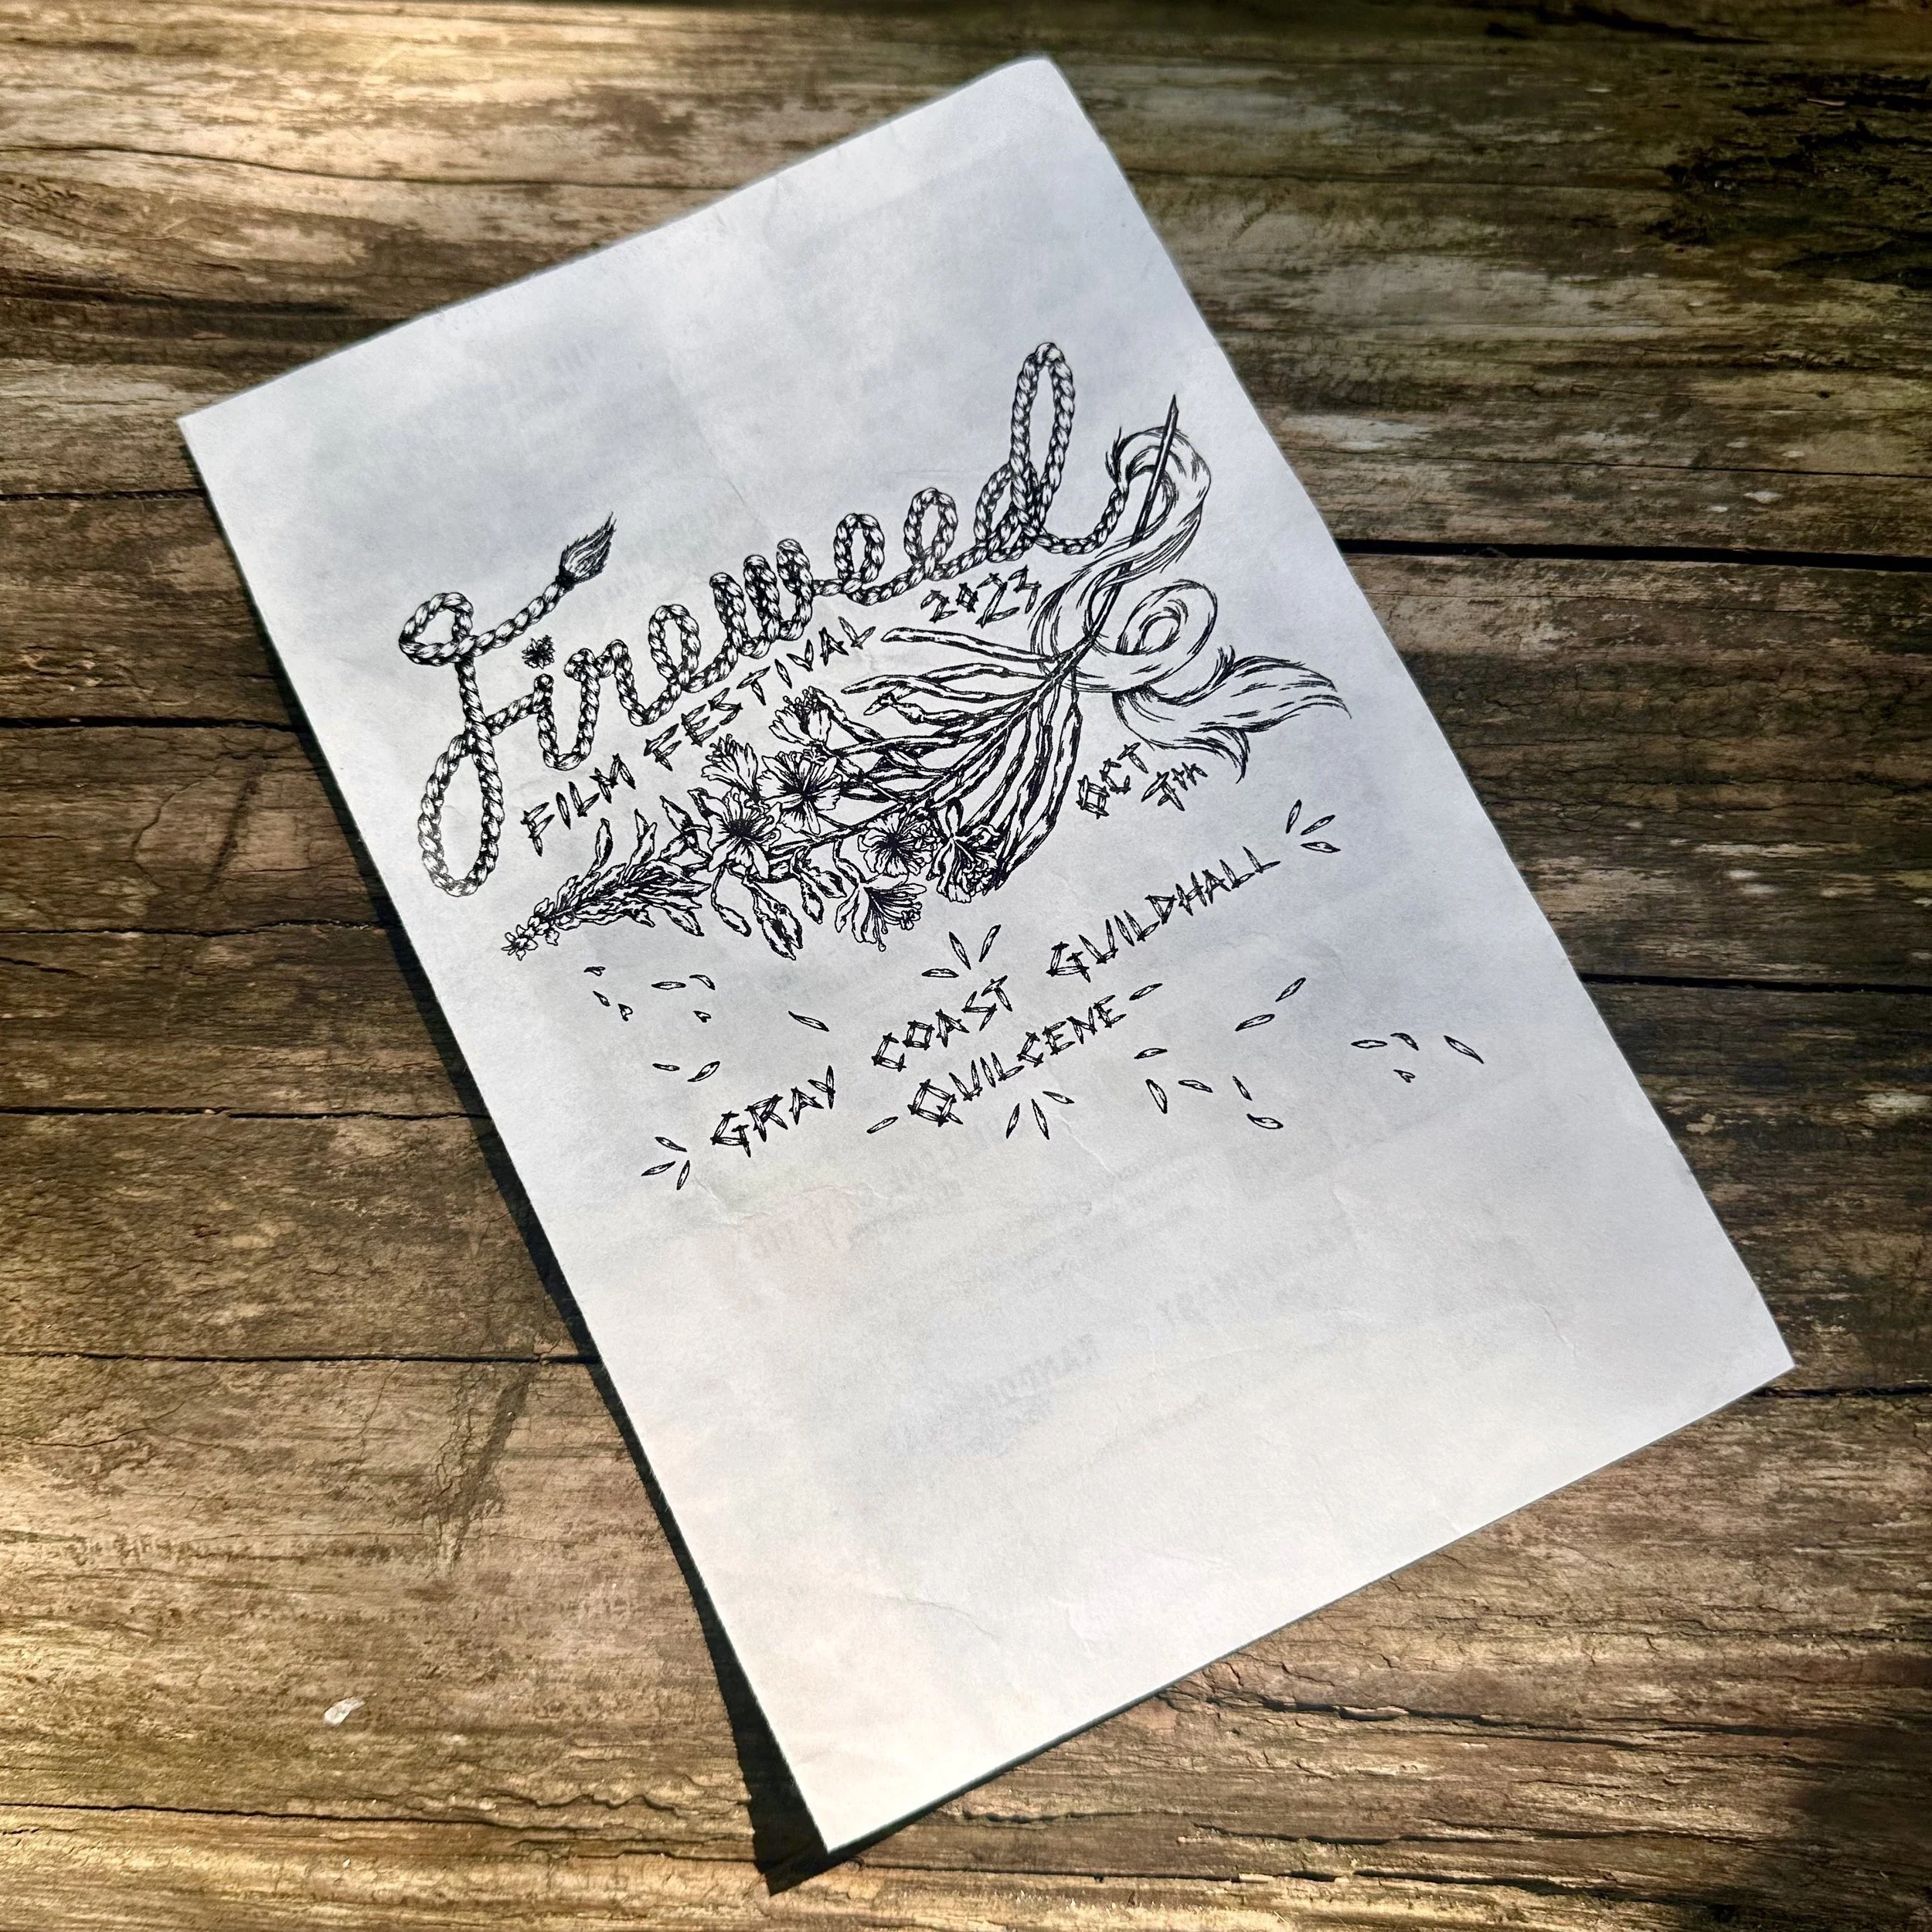 Fireweed
FILM FESTIVAL 2023
OCT 7th
GRAY COAST GUILDHALL
- QUILCENE -